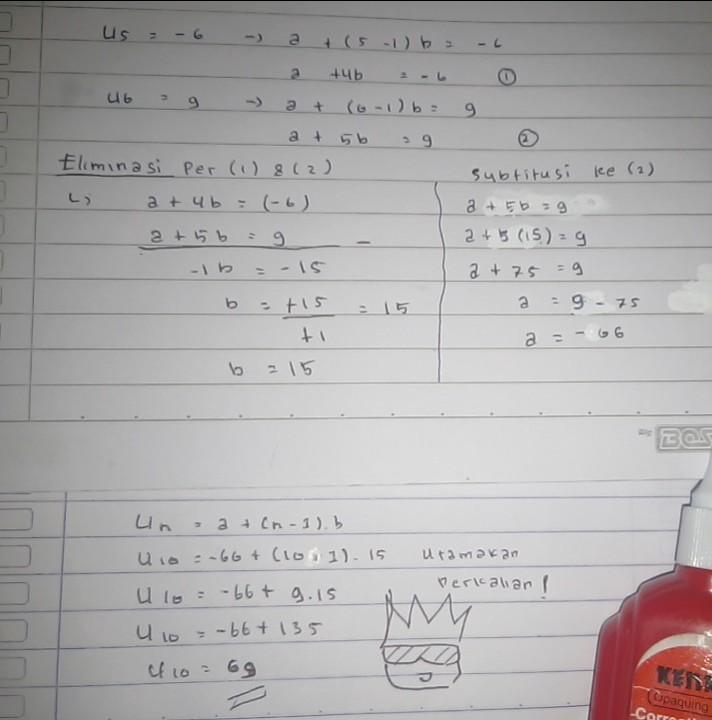 U5 = -6 → a + (5 - 1) b = -6
a + 4b = -6 ①
U6 = 9 → a + (6 - 1) b = 9
a + 5b = 9 ②
Eliminasi Per (1) & (2)
↳ a + 4b = (-6)
a + 5b = 9 –
-1b = -15
b = +15 = 15
+1
b = 15
Subtitusi ke (2)
a + 5b = 9
a + 5 (15) = 9
a + 75 = 9
a = 9 - 75
a = -66
BOS
Un = a + (n - 1). b
U10 = -66 + (10 1). 15 Utamakan
Perkalian!
U10 = -66 + 9.15
U10 = -66 + 135
U10 = 69
(Opaquing